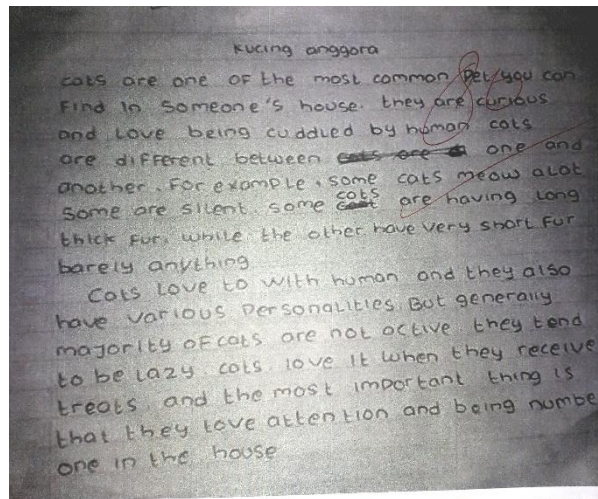 Kucing anggora
cats are one of the most common Pet you can
Find In Someone's house. they are curious
and Love being cuddled by human cats
are different between one and
another. For example, some cats meow alot
some are silent. some cats are having long
thick fur, while the other have very short fur
barely anything
Cats Love to with human and they also
have various personalities. But generally
majority of cats are not active they tend
to be lazy. cats love It when they receive
treats. and the most important thing is
that they love attention and being numbe
one in the house